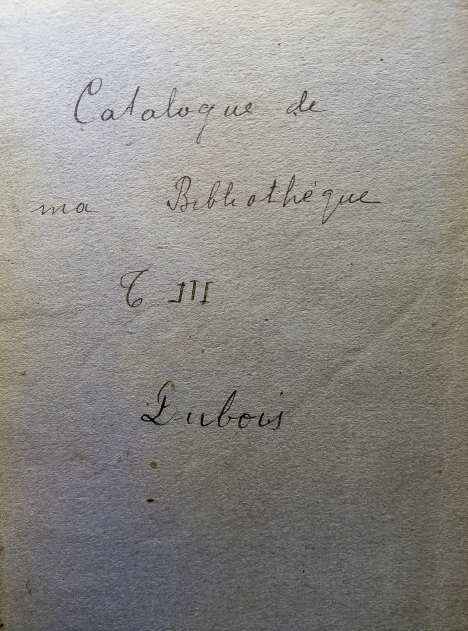 Catalogue de
ma Bibliothèque
T III
Dubois